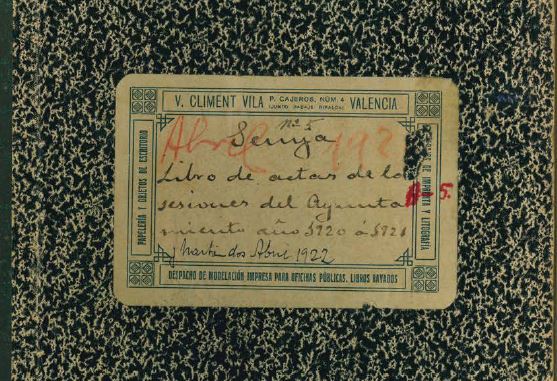 V. CLIMENT VILA P. CAJEROS, NÚM. 4 VALENCIA
(JUNTO PASAJE RIPALDA)
PAPELERÍA Y OBJETOS DE ESCRITORIO
Nº 5
Abril 192
Senyja
Libro de actas de las
sesiones del Ayunta
miento año 1920 á 1921
y hasta dos Abril 1922
A-5.
DE IMPRENTA Y LITOGRAFIA
DESPACHO DE MODELACIÓN IMPRESA PARA OFICINAS PÚBLICAS. LIBROS RAYADOS